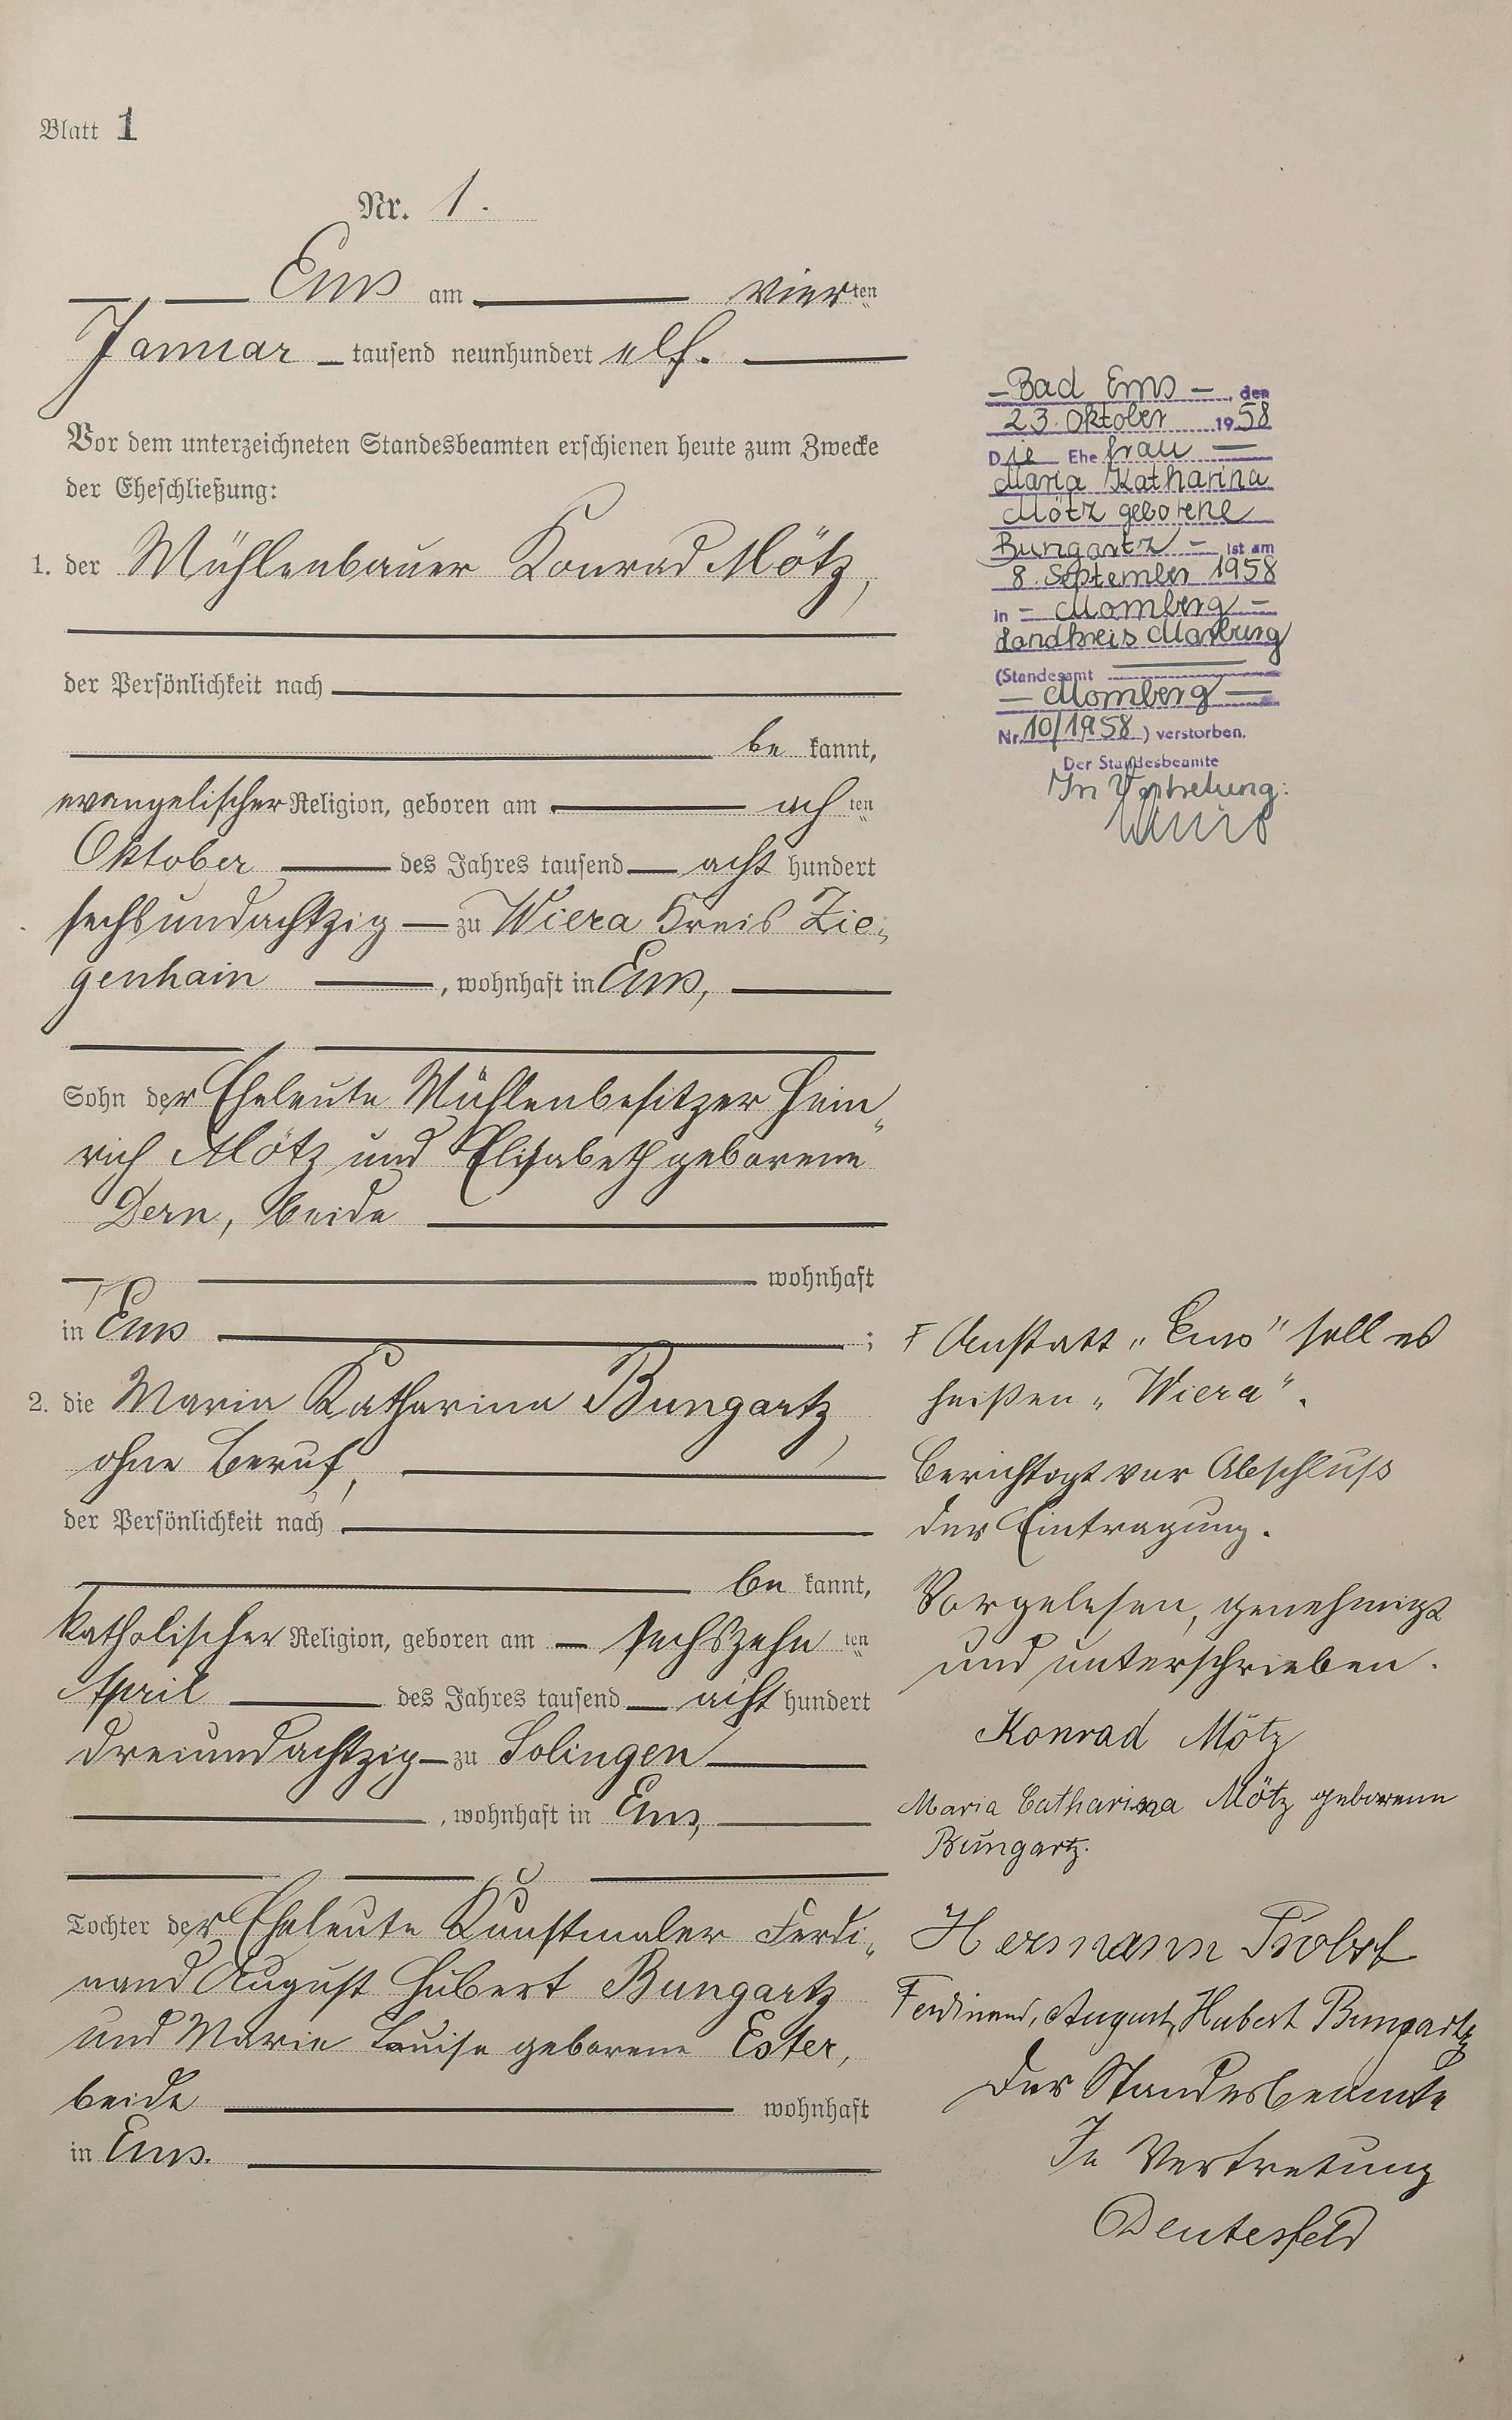 Blatt 1
Nr. 1.
Ems am vierten
Januar tausend neunhundert elf.
Vor dem unterzeichneten Standesbeamten erschienen heute zum Zwecke
der Eheschließung:
1. der Mühlenbauer Konrad Mötz,
der Persönlichkeit nach
be kannt,
evangelischer Religion, geboren am achten
Oktober des Jahres tausend acht hundert
sechsundachtzig zu Wiera Kreis Zie-
genhain, wohnhaft in Ems,
Sohn der Eheleute Mühlenbesitzer Hein-
rich Mötz und Elisabeth geborene
Dern, beide
wohnhaft
in Ems ;
2. die Maria Katharina Bungartz,
ohne Beruf,
der Persönlichkeit nach
be kannt,
katholischer Religion, geboren am sechszehnten
April des Jahres tausend acht hundert
dreiundachtzig zu Solingen
, wohnhaft in Ems,
Tochter der Eheleute Kunstmaler Ferdi-
nand August Hubert Bungartz
und Marie Louise geborene Ester,
beide wohnhaft
in Ems.
- Bad Ems -, den
23. Oktober 1958
Die Ehefrau
Maria Katharina
Mötz geborene
Bungartz - ist am
8. September 1958
in - Momberg -
Landkreis Marburg
(Standesamt
- Momberg -
Nr. 10/1958) verstorben.
Der Standesbeamte
In Vertretung:
Anstatt „Ems" soll es
heißen „Wiera".
Berichtigt vor Abschluß
der Eintragung.
Vorgelesen, genehmigt
und unterschrieben.
Konrad Mötz
Maria Catharina Mötz geborene
Bungartz.
Hermann Probst
Ferdinand, August, Hubert Bungartz
Der Standesbeamte
In Vertretung